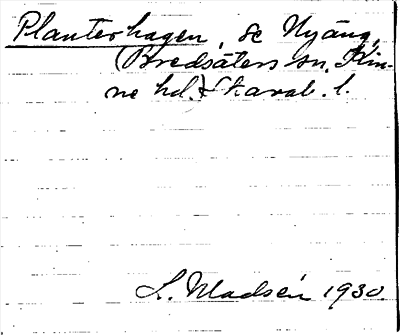 Planterhagen, se Nyäng,
(Bredsäters sn, Kin-
ne hd.) Skarab. l.
L. Madsén 1930.